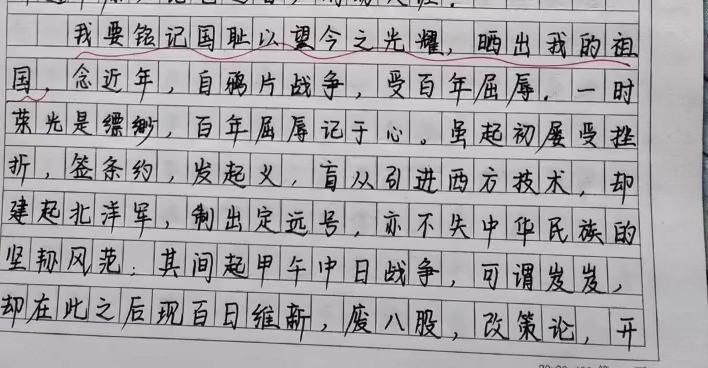 我要铭记国耻以望今之光耀，晒出我的祖
国，念近年，自鸦片战争，受百年屈辱．一时
荣光是缥缈，百年屈辱记于心。虽起初屡受挫
折，签条约，发起义，盲从引进西方技术，却
建起北洋军，制出定远号，亦不失中华民族的
坚韧风范；其间起甲午中日战争，可谓岌岌，
却在此之后现百日维新，废八股，改策论，开